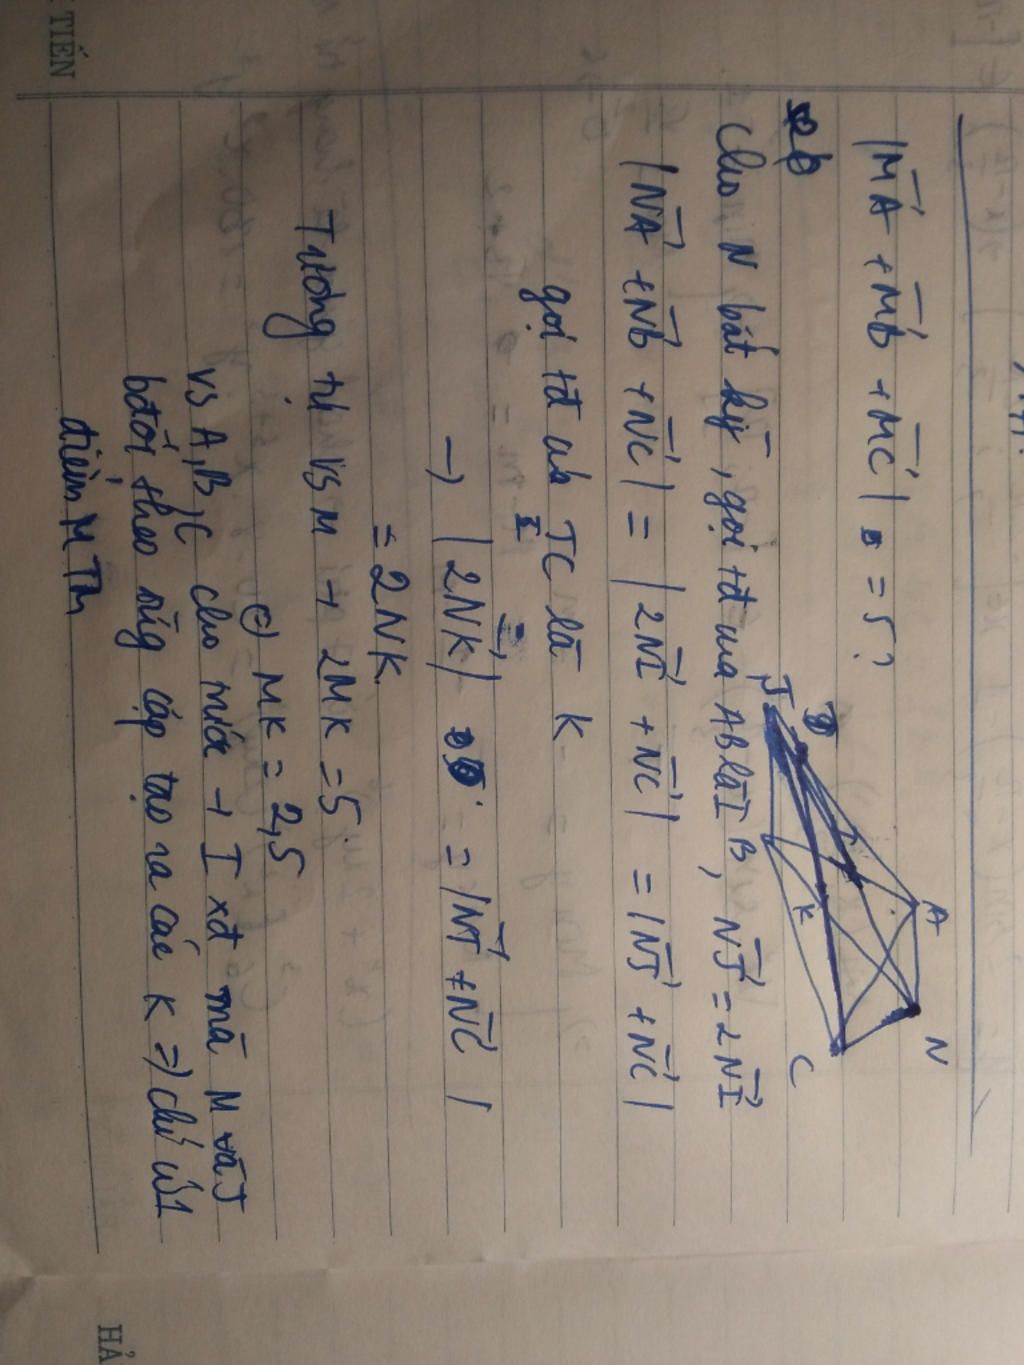 |MA + MB + MC| = 5?
Cho N bất kỳ, gọi tđ của AB là I, NJ = 2NI
|NA + NB + NC| = |2NI + NC| = |NJ + NC|
gọi tđ của JC là K
→ |2NK| = |NJ + NC|
= 2NK
Tương tự vs M → 2MK = 5
⇔ MK = 2,5
vs A, B, C cho trước → I xđ mà M và J
bđổi theo từng cặp tạo ra các K ⇒ chỉ có 1
điểm M TM
A
N
B
I
J
K
C
TIẾN
HẢ